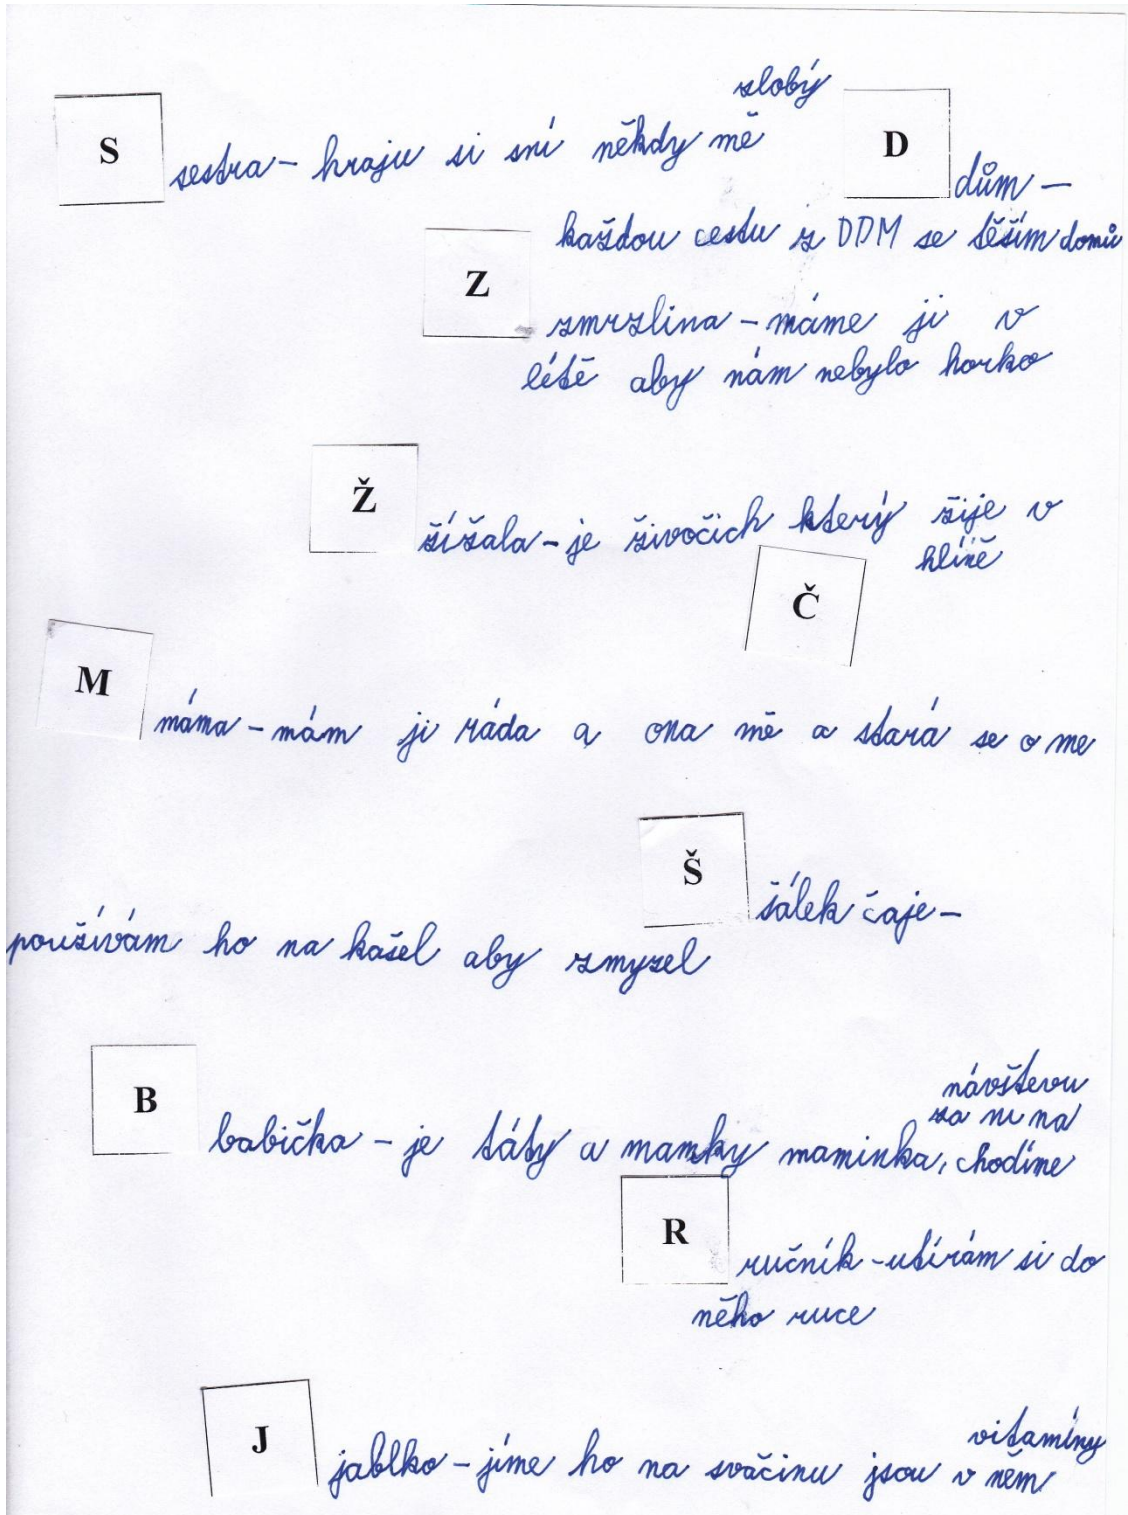 zlobý
S
sestra - hraju si sní někdy mě
D
dům -
každou cestu z DDM se těším domů
Z
zmrzlina - máme ji v
létě aby nám nebylo horko
Ž
žížala - je živočich který žije v
hlíně
Č
M
máma - mám ji ráda a ona mě a stará se o me
Š
šálek čaje -
používám ho na kašel aby zmyzel
B
návštevu
za ni na
babička - je táty a mamky maminka, chodíme
R
ručník - utírám si do
něho ruce
J
vitamíny
jablko - jíme ho na svačinu jsou v něm